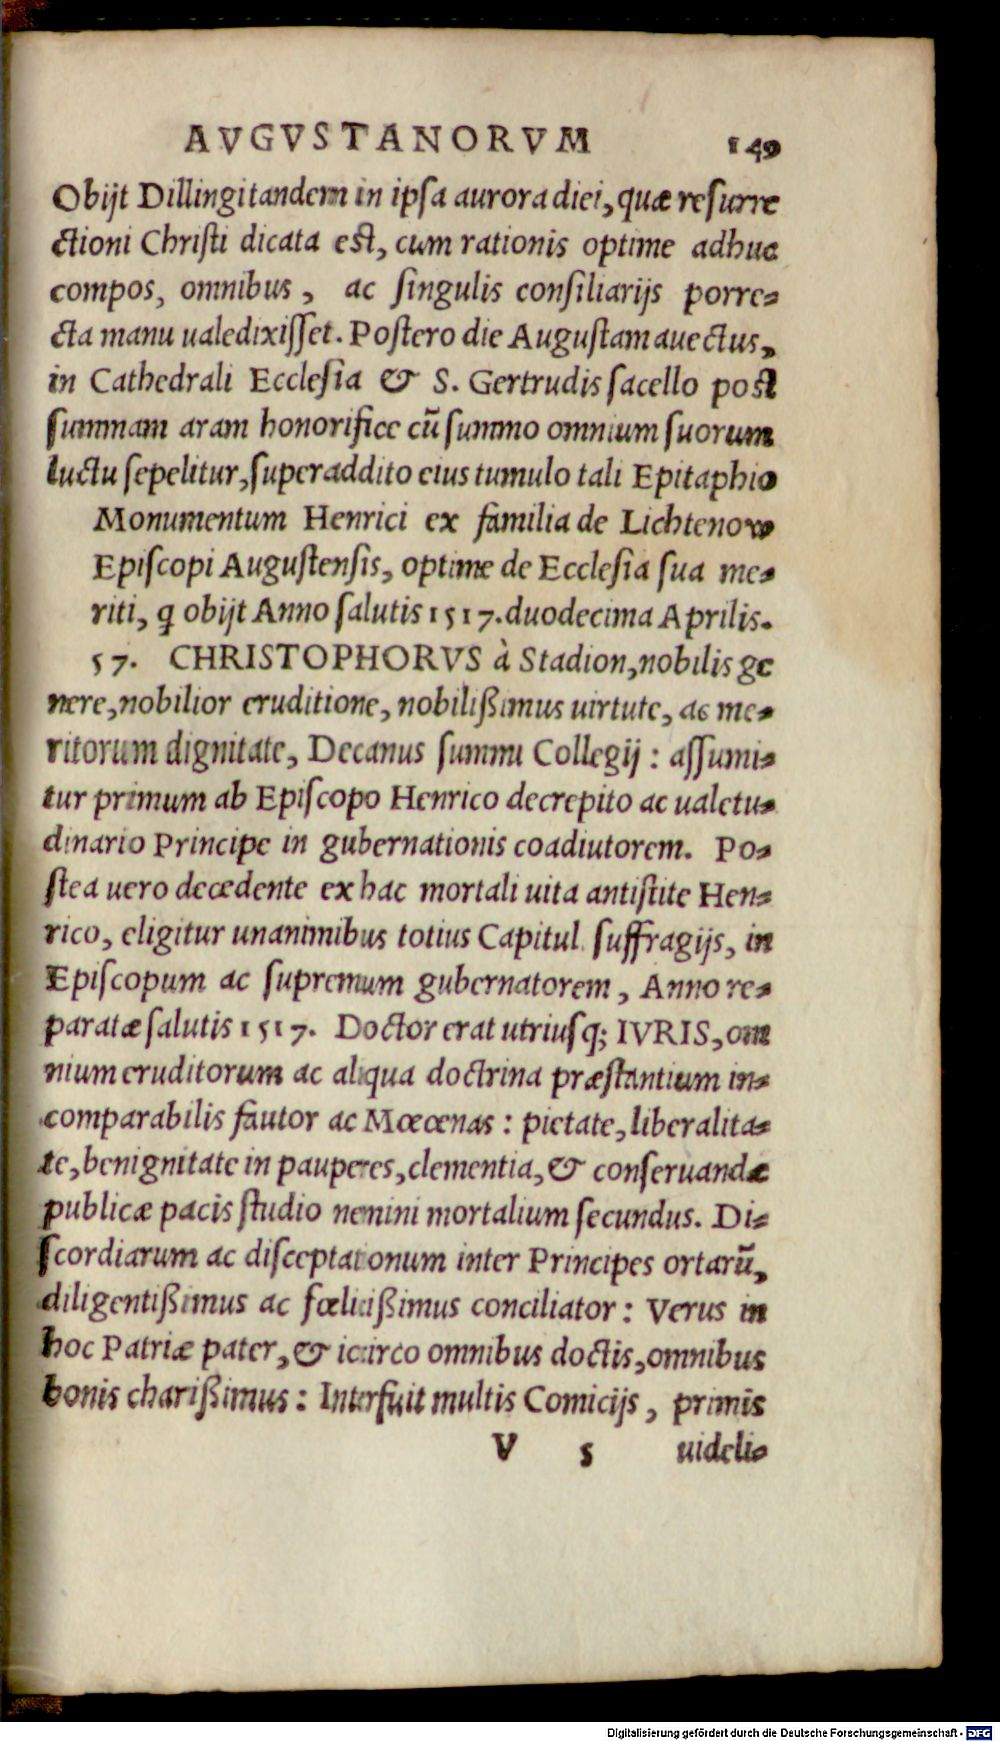 AVGVSTANORVM 149
Obijt Dillingi tandem in ipsa aurora diei, quæ resurre
ctioni Christi dicata est, cum rationis optime adhuc
compos, omnibus, ac singulis consiliarijs porre-
cta manu ualedixisset. Postero die Augustam auectus,
in Cathedrali Ecclesia & S. Gertrudis sacello post
summam aram honorifice cū summo omnium suorum
luctu sepelitur, superaddito eius tumulo tali Epitaphio
Monumentum Henrici ex familia de Lichtenow
Episcopi Augustensis, optime de Ecclesia sua me-
riti, q obijt Anno salutis 1517. duodecima Aprilis.
57. CHRISTOPHORVS à Stadion, nobilis ge
nere, nobilior eruditione, nobilißimus uirtute, ac me-
ritorum dignitate, Decanus summi Collegij: assumi-
tur primum ab Episcopo Henrico decrepito ac ualetu-
dinario Principe in gubernationis coadiutorem. Po-
stea uero decedente ex hac mortali uita antistite Hen-
rico, eligitur unanimibus totius Capitul suffragijs, in
Episcopum ac supremum gubernatorem, Anno re-
paratæ salutis 1517. Doctor erat utriusq; IVRIS, om
nium eruditorum ac aliqua doctrina præstantium in-
comparabilis fautor ac Mœcenas: pietate, liberalita-
te, benignitate in pauperes, clementia, & conseruandæ
publicæ pacis studio nemini mortalium secundus. Di-
scordiarum ac disceptationum inter Principes ortarū,
diligentißimus ac fœlicißimus conciliator: Verus in
hoc Patriæ pater, & icirco omnibus doctis, omnibus
bonis charißimus: Interfuit multis Comicijs, primis
V 5 uideli-
Digitalisierung gefördert durch die Deutsche Forschungsgemeinschaft - DFG